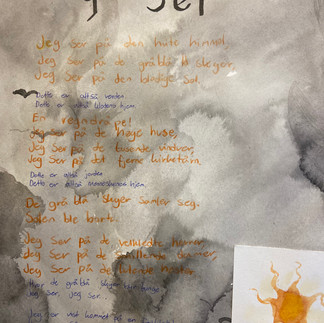 Jeg ser
Jeg ser på den hvite himmel,
Jeg ser på de gråblå skyer,
Jeg ser på den blodige sol.
Dette er altså verden.
Dette er altså klodens hjem.
En regndråpe!
Jeg ser på de høje huse,
Jeg ser på de tusende vinduer,
Jeg ser på det fjerne kirketårn.
Dette er altså jorden.
Dette er altså menneskenes hjem.
De gråblå skyer samler seg.
Solen ble borte.
Jeg ser på de velkledte herrer,
Jeg ser på de smilende damer,
Jeg ser på de lutende hester.
de gråblå skyer
Jeg ser, jeg ser...
Jeg er visst kommet på en